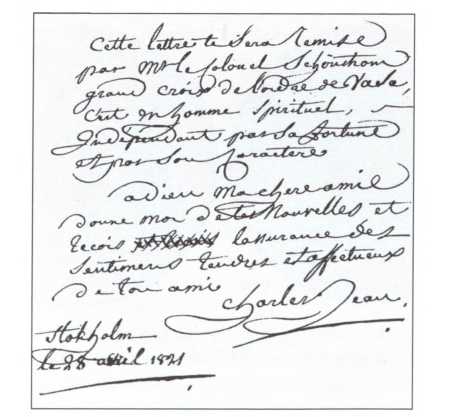 Cette lettre te Sera Remise
par Mr le Colonel
grand croix de l'ordre de Vasa,
C'est un homme Spirituel,
Independant par Sa fortune
et par Son Caractere
adieu Ma chere amie
donne moi de tes Nouvelles et
Recois l'assurance des
Sentimens tendres et affectueux
de ton ami
Charles Jean.
Stokholm
le 28 avril 1821